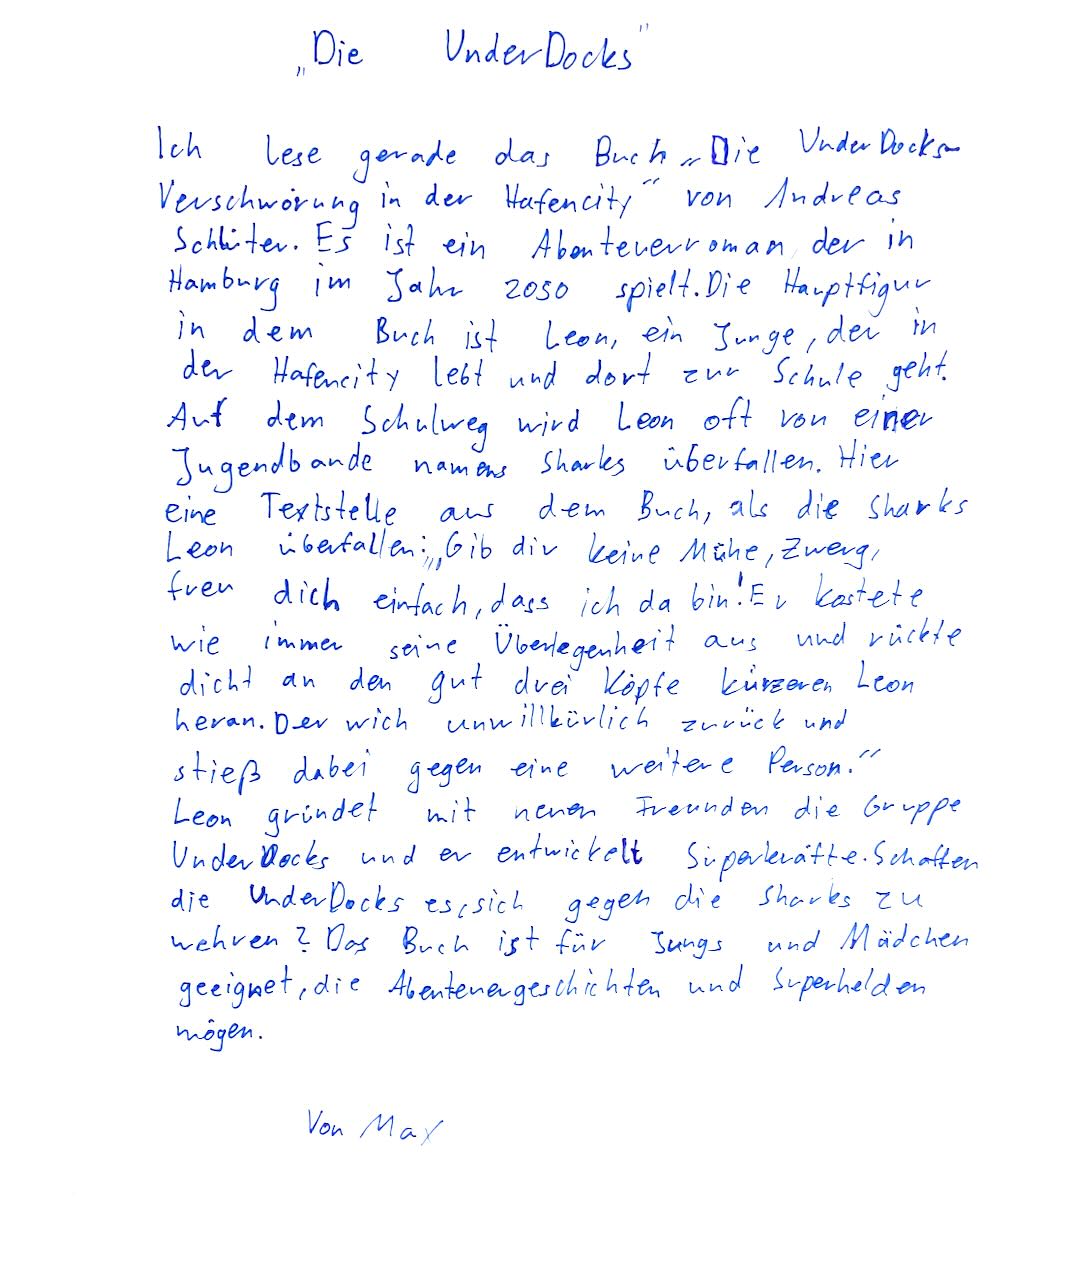 „Die UnderDocks"
Ich lese gerade das Buch „Die UnderDocks-
Verschwörung in der Hafencity" von Andreas
Schlüter. Es ist ein Abenteuerroman, der in
Hamburg im Jahr 2050 spielt. Die Hauptfigur
in dem Buch ist Leon, ein Junge, der in
der Hafencity lebt und dort zur Schule geht.
Auf dem Schulweg wird Leon oft von einer
Jugendbande namens Sharks überfallen. Hier
eine Textstelle aus dem Buch, als die Sharks
Leon überfallen: „„Gib dir keine Mühe, Zwerg,
freu dich einfach, dass ich da bin!' Er kostete
wie immer seine Überlegenheit aus und rückte
dicht an den gut drei Köpfe kürzeren Leon
heran. Der wich unwillkürlich zurück und
stieß dabei gegen eine weitere Person."
Leon gründet mit neuen Freunden die Gruppe
UnderDocks und er entwickelt Superkräfte. Schaffen
die UnderDocks es, sich gegen die Sharks zu
wehren? Das Buch ist für Jungs und Mädchen
geeignet, die Abenteuergeschichten und Superhelden
mögen.
Von Max